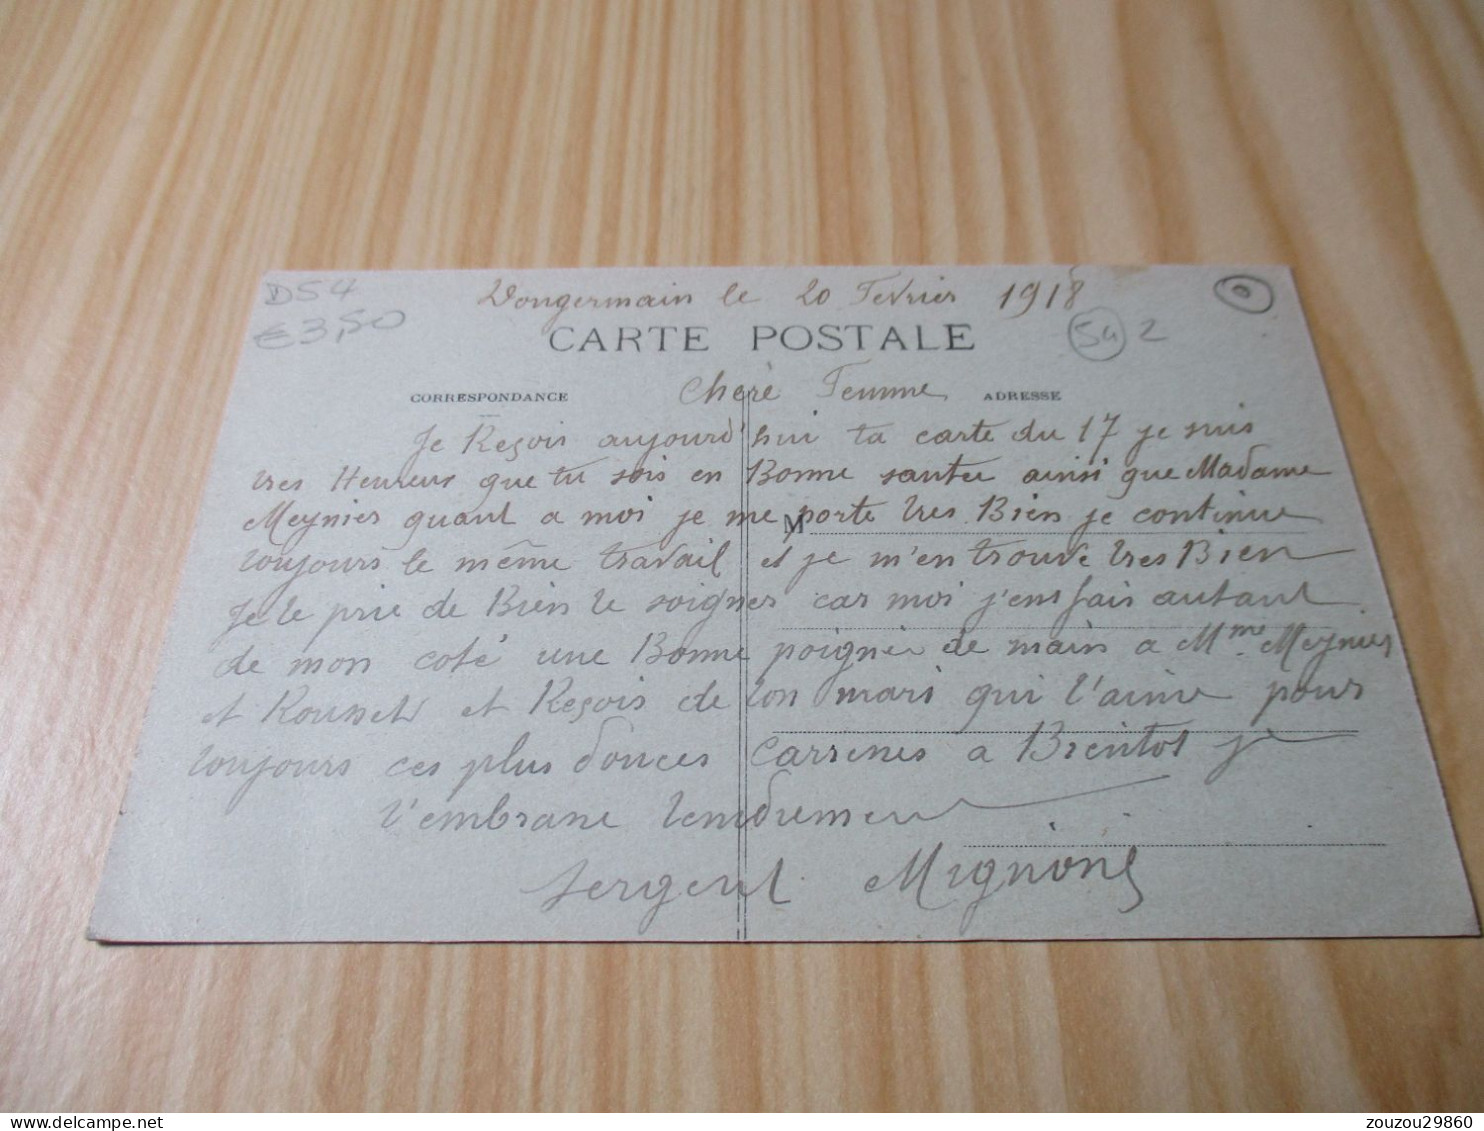 D54
€3,50
Dongermain le 20 Fevrier 1918
54 2
CARTE POSTALE
CORRESPONDANCE
ADRESSE
Chère Femme
Je Reçois aujourd'hui ta carte du 17 je suis
tres Heureux que tu sois en Bonne santée ainsi que Madame
Meynier quant a moi je me porte tres Bien je continue
M
toujours le même travail et je m'en trouve tres Bien
Je te prie de Bien te soigner car moi j'ent fais autant
de mon coté une Bonne poignée de main a Mme Meynier
et Rousset et Reçois de ton mari qui t'aime pour
toujours ces plus douces Carresses a Bientot je
t'embrasse tendrement
Sergent Mignon
zouzou29860